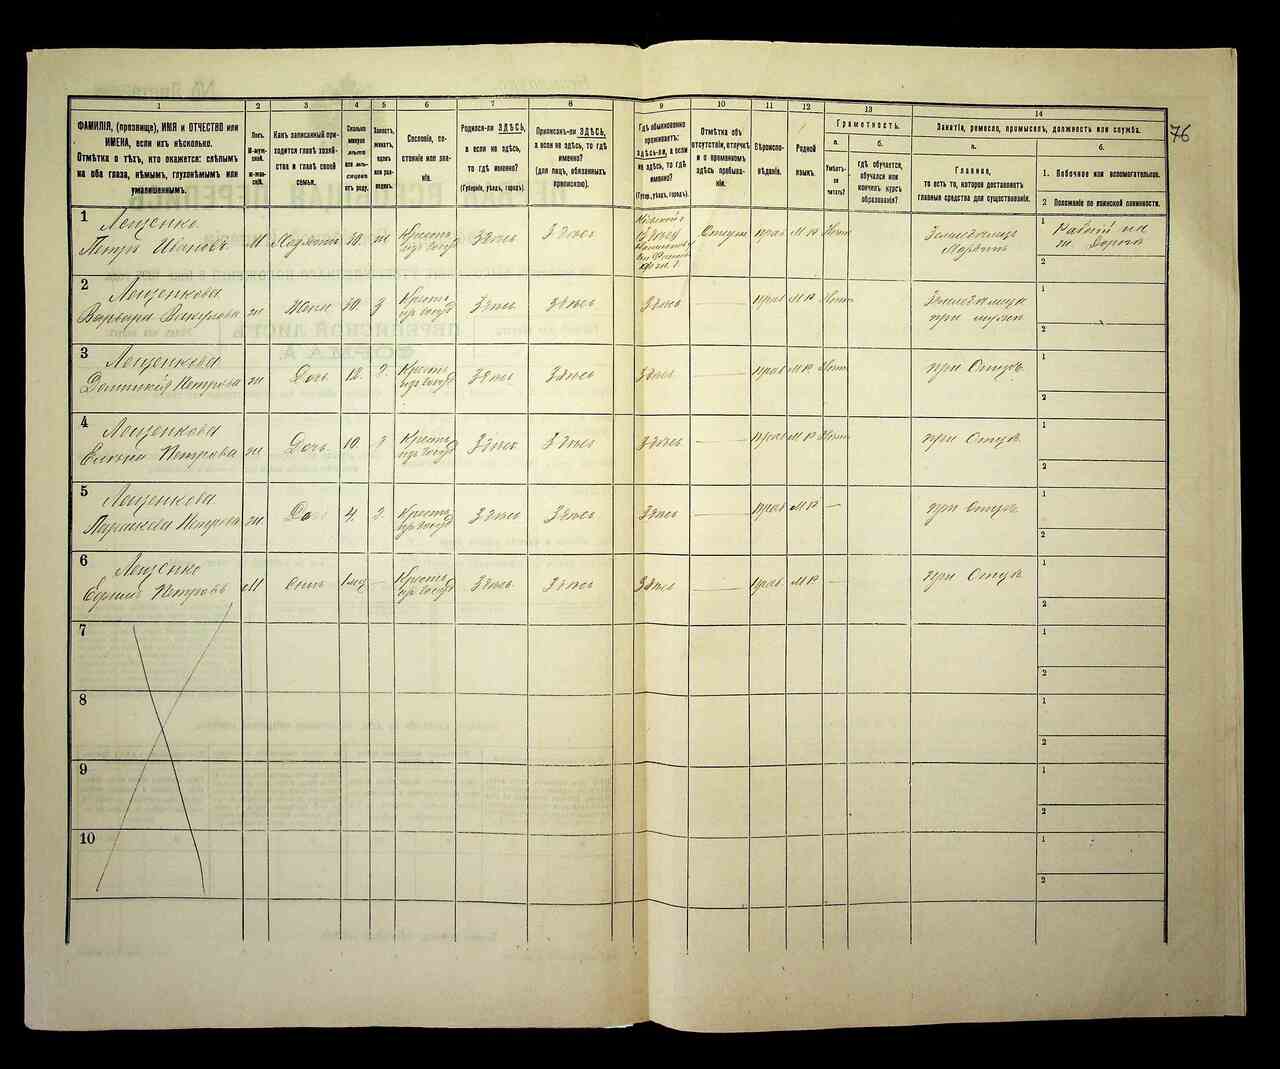 76
1 2 3 4 5 6 7 8 9 10 11 12 13 14
ФАМИЛІЯ, (прозвище), ИМЯ и ОТЧЕСТВО или
ИМЕНА, если ихъ нѣсколько.
Отмѣтка о тѣхъ, кто окажется: слѣпымъ
на оба глаза, нѣмымъ, глухонѣмымъ или
умалишеннымъ.
Полъ.
М-муж-
ской.
Ж-жен-
скій.
Какъ записанный при-
ходится главѣ хозяй-
ства и главѣ своей
семьи.
Сколько
минуло
лѣтъ
или мѣ-
сяцевъ
отъ роду.
Холостъ,
женатъ,
вдовъ
или раз-
веденъ.
Сословіе, со-
стояніе или зва-
ніе.
Родился-ли ЗДѢСЬ,
а если не здѣсь,
то гдѣ именно?
(Губернія, уѣздъ, городъ).
Приписанъ-ли ЗДѢСЬ,
а если не здѣсь, то гдѣ
именно?
(для лицъ, обязанныхъ
припискою).
Гдѣ обыкновенно
проживаетъ:
здѣсь-ли, а если
не здѣсь, то гдѣ
именно?
(Губер., уѣздъ, городъ).
Отмѣтка объ
отсутствіи, отлучкѣ
и о временномъ
здѣсь пребыва-
ніи.
Вѣроиспо-
вѣданіе.
Родной
языкъ.
Грамотность.
а.
Умѣетъ-
ли
читать?
б.
гдѣ обучается,
обучался или
кончилъ курсъ
образованія?
Занятіе, ремесло, промыселъ, должность или служба.
а.
Главное,
то есть то, которое доставляетъ
главныя средства для существованія.
б.
1. Побочное или вспомогательное.
2 Положеніе по воинской повинности.
1 Лещенко
Петръ Ивановъ М Хозяинъ 40. ж Крестъ. изъ госуд здѣсь здѣсь здѣсь Отсут прав МР Нѣтъ Земледѣлецъ 1 Работ на
ж Дорогѣ
2
2 Лещенкова
Варвара Викулова ж Жена 40. З Крестъ. изъ госуд здѣсь здѣсь здѣсь — прав МР Нѣтъ Земледѣлица
при мужѣ 1
2
3 Лещенкова
Петрова ж Дочь 12. Крестъ. изъ госуд здѣсь здѣсь здѣсь — прав МР Нѣтъ при Отцѣ 1
2
4 Лещенкова
Елена Петрова ж. Дочь 10. Крестъ. изъ госуд здѣсь здѣсь здѣсь — прав МР Нѣтъ при Отцѣ 1
2
5 Лещенкова
Параскева Петрова ж. 4. Крестъ. изъ госуд здѣсь здѣсь здѣсь прав МР — при Отцѣ 1
2
6 Лещенко
Ефимъ Петровъ М сынъ — Крестъ. изъ госуд здѣсь здѣсь здѣсь — прав МР — при Отцѣ 1
2
7 1
2
8 1
2
9 1
2
10 1
2